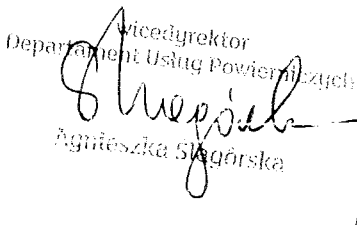 Wicedyrektor
Departament Usług Powierniczych
Agnieszka Ślagórska